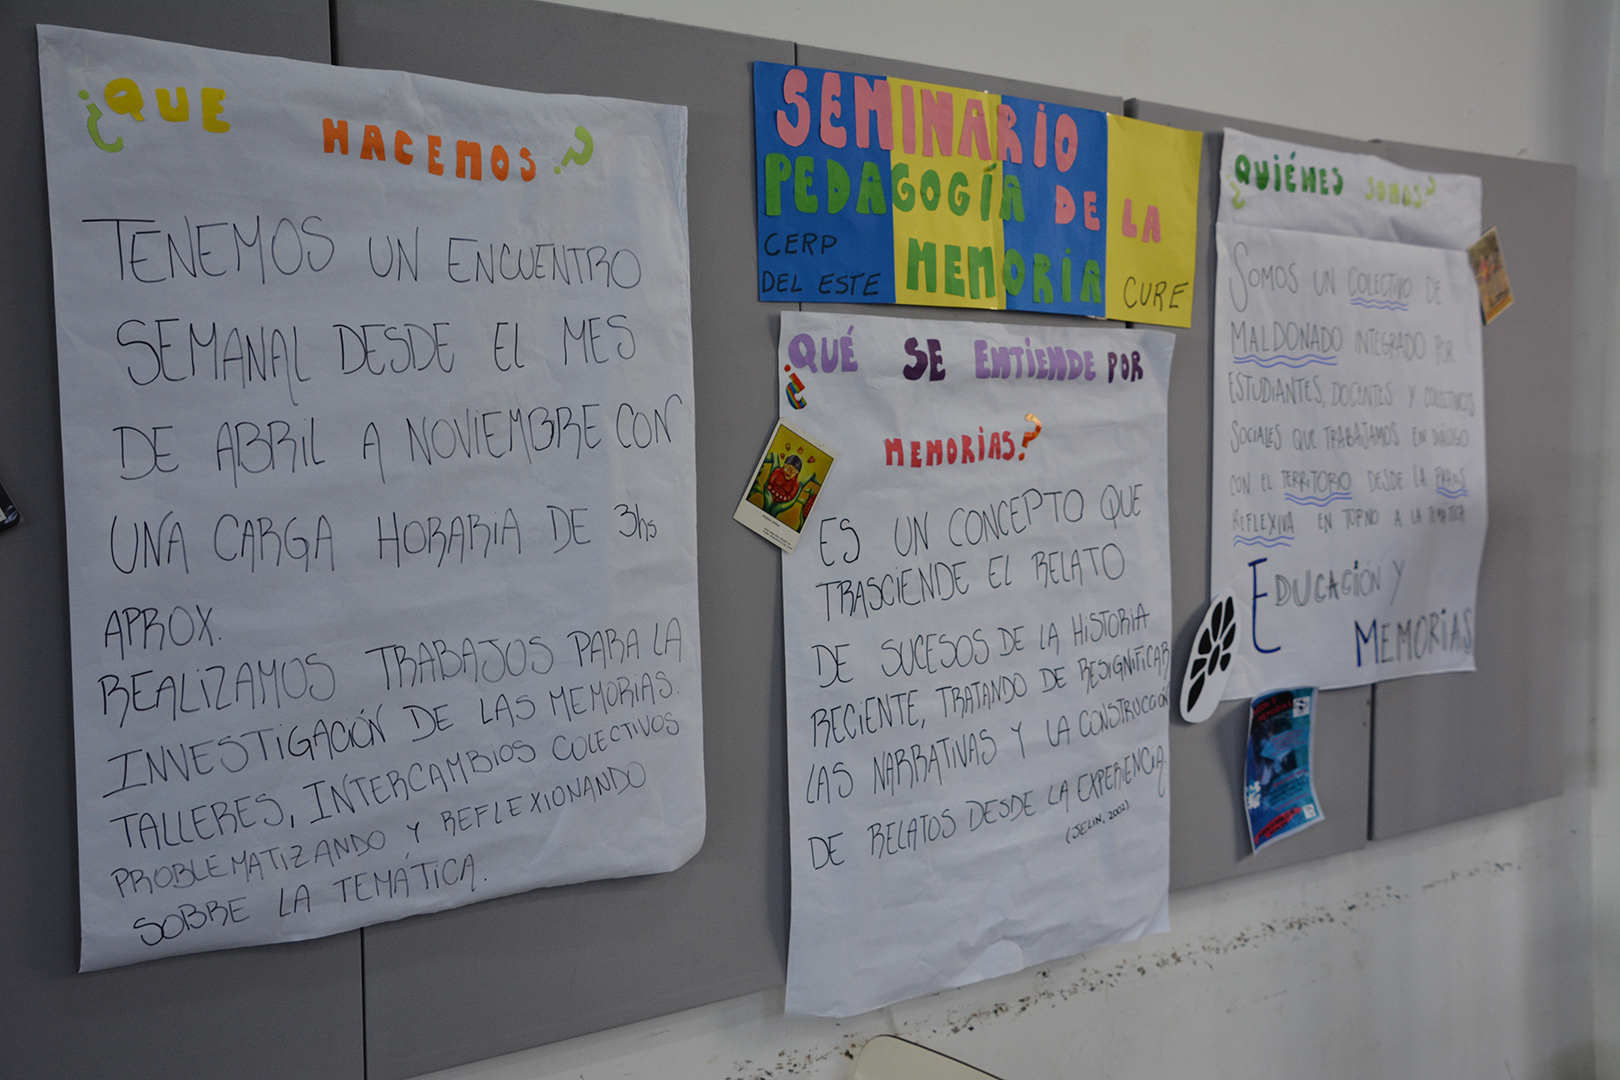 ¿QUE HACEMOS?
TENEMOS UN ENCUENTRO
SEMANAL DESDE EL MES
DE ABRIL A NOVIEMBRE CON
UNA CARGA HORARIA DE 3hs
APROX.
REALIZAMOS TRABAJOS PARA LA
INVESTIGACIÓN DE LAS MEMORIAS.
TALLERES, INTERCAMBIOS COLECTIVOS
PROBLEMATIZANDO Y REFLEXIONANDO
SOBRE LA TEMÁTICA.
SEMINARIO
PEDAGOGÍA DE LA
MEMORIA
CERP
DEL ESTE
CURE
¿QUÉ SE ENTIENDE POR
MEMORIAS?
ES UN CONCEPTO QUE
TRASCIENDE EL RELATO
DE SUCESOS DE LA HISTORIA
RECIENTE, TRATANDO DE RESIGNIFICAR
LAS NARRATIVAS Y LA CONSTRUCCIÓN
DE RELATOS DESDE LA EXPERIENCIA.
(JELIN, 2002)
¿QUIÉNES SOMOS?
SOMOS UN COLECTIVO DE
MALDONADO INTEGRADO POR
ESTUDIANTES, DOCENTES Y COLECTIVOS
SOCIALES QUE TRABAJAMOS EN DIÁLOGO
CON EL TERRITORIO DESDE LA PRAXIS
REFLEXIVA EN TORNO A LA TEMÁTICA
EDUCACIÓN Y
MEMORIAS